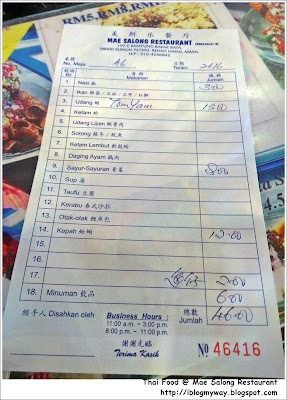 RM5,RM8.
美斯乐餐厅
MAE SALONG RESTAURANT
No. Meja: A6 Tarikh: 20/6
食物 Makanan 總數 Jumlah
1. Nasi 飯 3.00
2. Ikan
3. Udang 蝦 Tom Yam 15.00
4. Ketam 蟹
5. Udang Lipan
6. Sotong
7. Ketam Lembut
8. Daging Ayam 鷄肉
9. Sayur-Sayuran 青菜 8.00
10. Sup 湯
11. Taufu 豆腐
12. Kerabu 泰式沙拉
13. Otak-otak
14. Kepah 12.00
15.
16.
17. 2.00
18. Minuman 飲品 6.00
經手人 Disahkan oleh
Business Hours :
11:00 a.m. – 3:00 p.m.
6:00 p.m. – 11:00 p.m.
總數 Jumlah 46.00
謝謝光臨
Terima Kasih
No 46416
Thai Food @ Mae Salong Restaurant
http://iblogmyway.blogspot.com